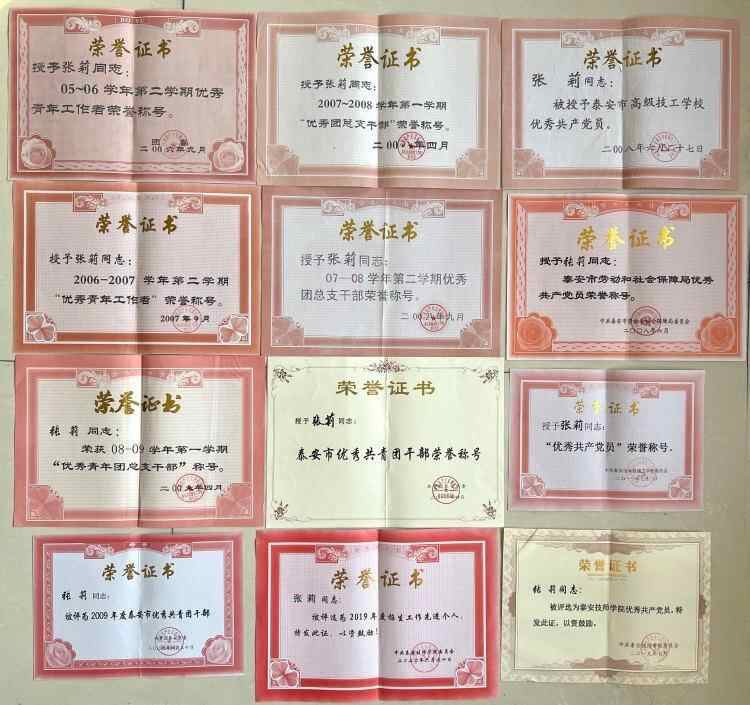 荣誉证书
授予张莉同志：
05~06 学年第二学期优秀
青年工作者荣誉称号。
二00六年九月
荣誉证书
授予张莉同志：
2007~2008 学年第一学期
“优秀团总支干部”荣誉称号。
二00八年四月
荣誉证书
张 莉同志：
被授予泰安市高级技工学校
优秀共产党员。
二00八年六月二十七日
荣誉证书
授予张莉同志：
2006-2007 学年第二学期
“优秀青年工作者”荣誉称号。
2007年9月
荣誉证书
授予张莉同志：
07—08 学年第二学期优秀
团总支干部荣誉称号。
二00八年九月
荣誉证书
授予张莉同志：
泰安市劳动和社会保障局优秀
共产党员荣誉称号。
中共泰安市劳动和社会保障局委员会
荣誉证书
张莉同志：
荣获 08-09 学年第一学期
“优秀青年团总支干部”称号。
二00九年四月
荣誉证书
授予张莉同志：
泰安市优秀共青团干部荣誉称号
荣誉证书
授予张莉同志：
“优秀共产党员”荣誉称号。
荣誉证书
张莉同志：
被评为2009年度泰安市优秀共青团干部
荣誉证书
张莉同志：
被评选为2019年度招生工作先进个人，
特发此证，以资鼓励！
中共泰安技师学院委员会
荣誉证书
张莉同志：
被评选为泰安技师学院优秀共产党员，特
发此证，以资鼓励。
中共泰安技师学院委员会